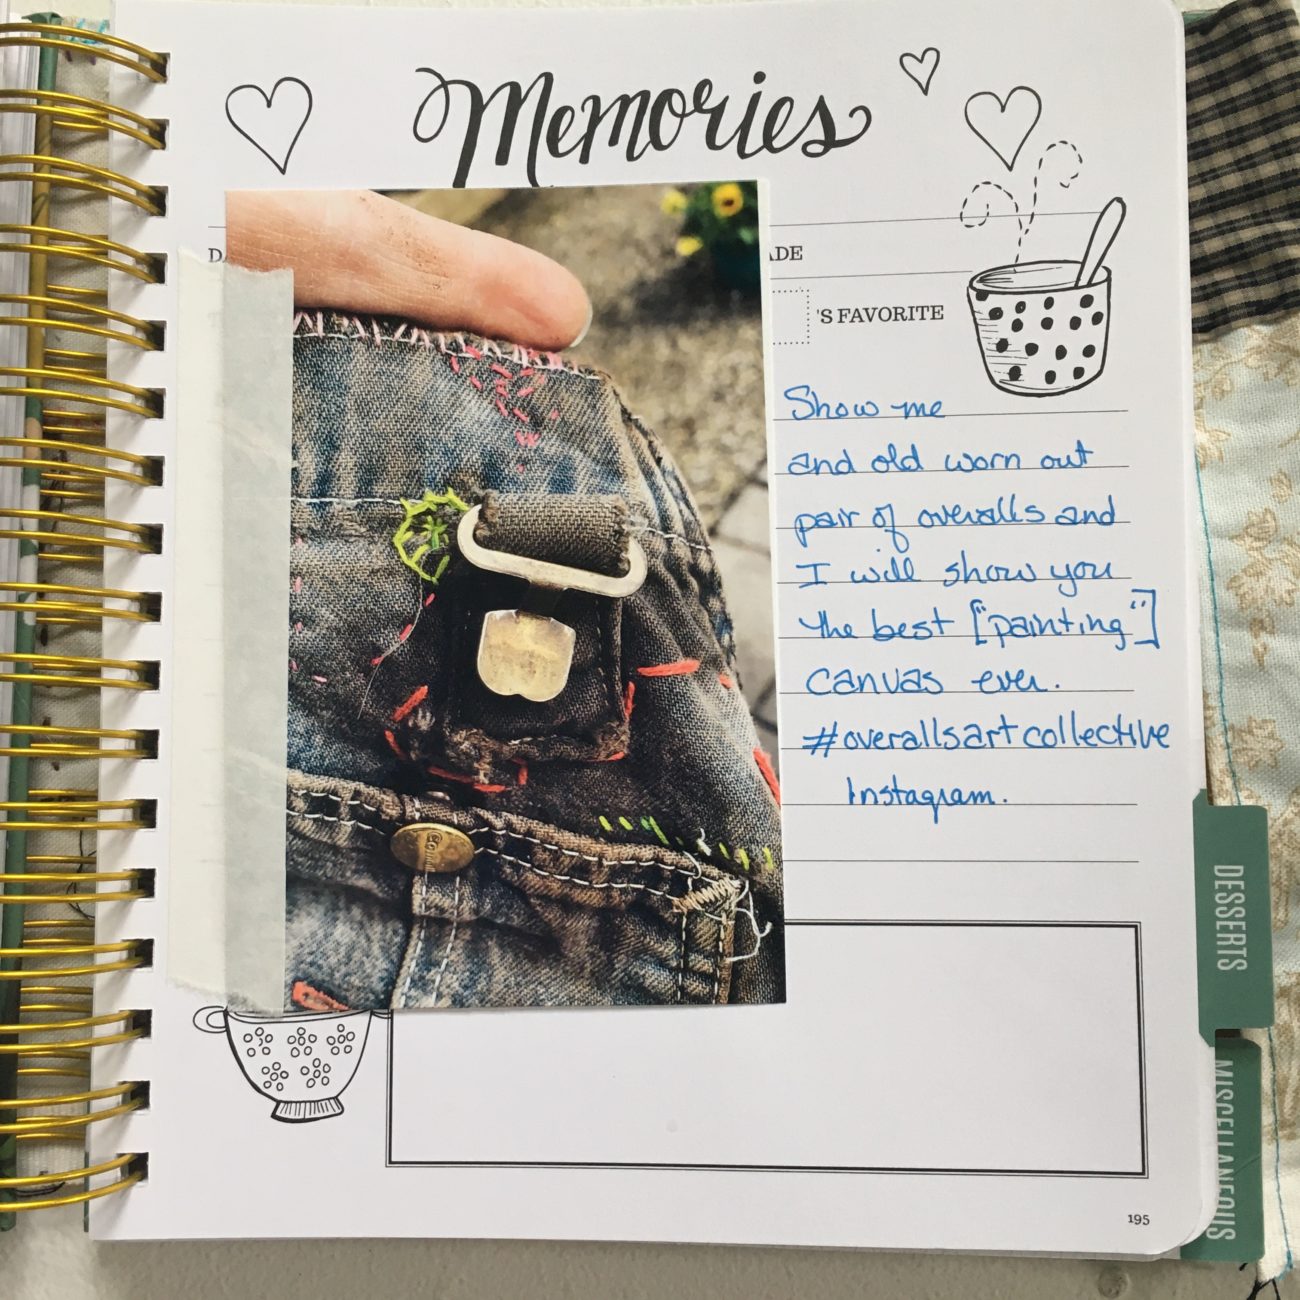 Memories
'S FAVORITE
Show me
and old worn out
pair of overalls and
I will show you
the best ["painting"]
canvas ever.
#overallsartcollective
Instagram.
DESSERTS
MISCELLANEOUS
195